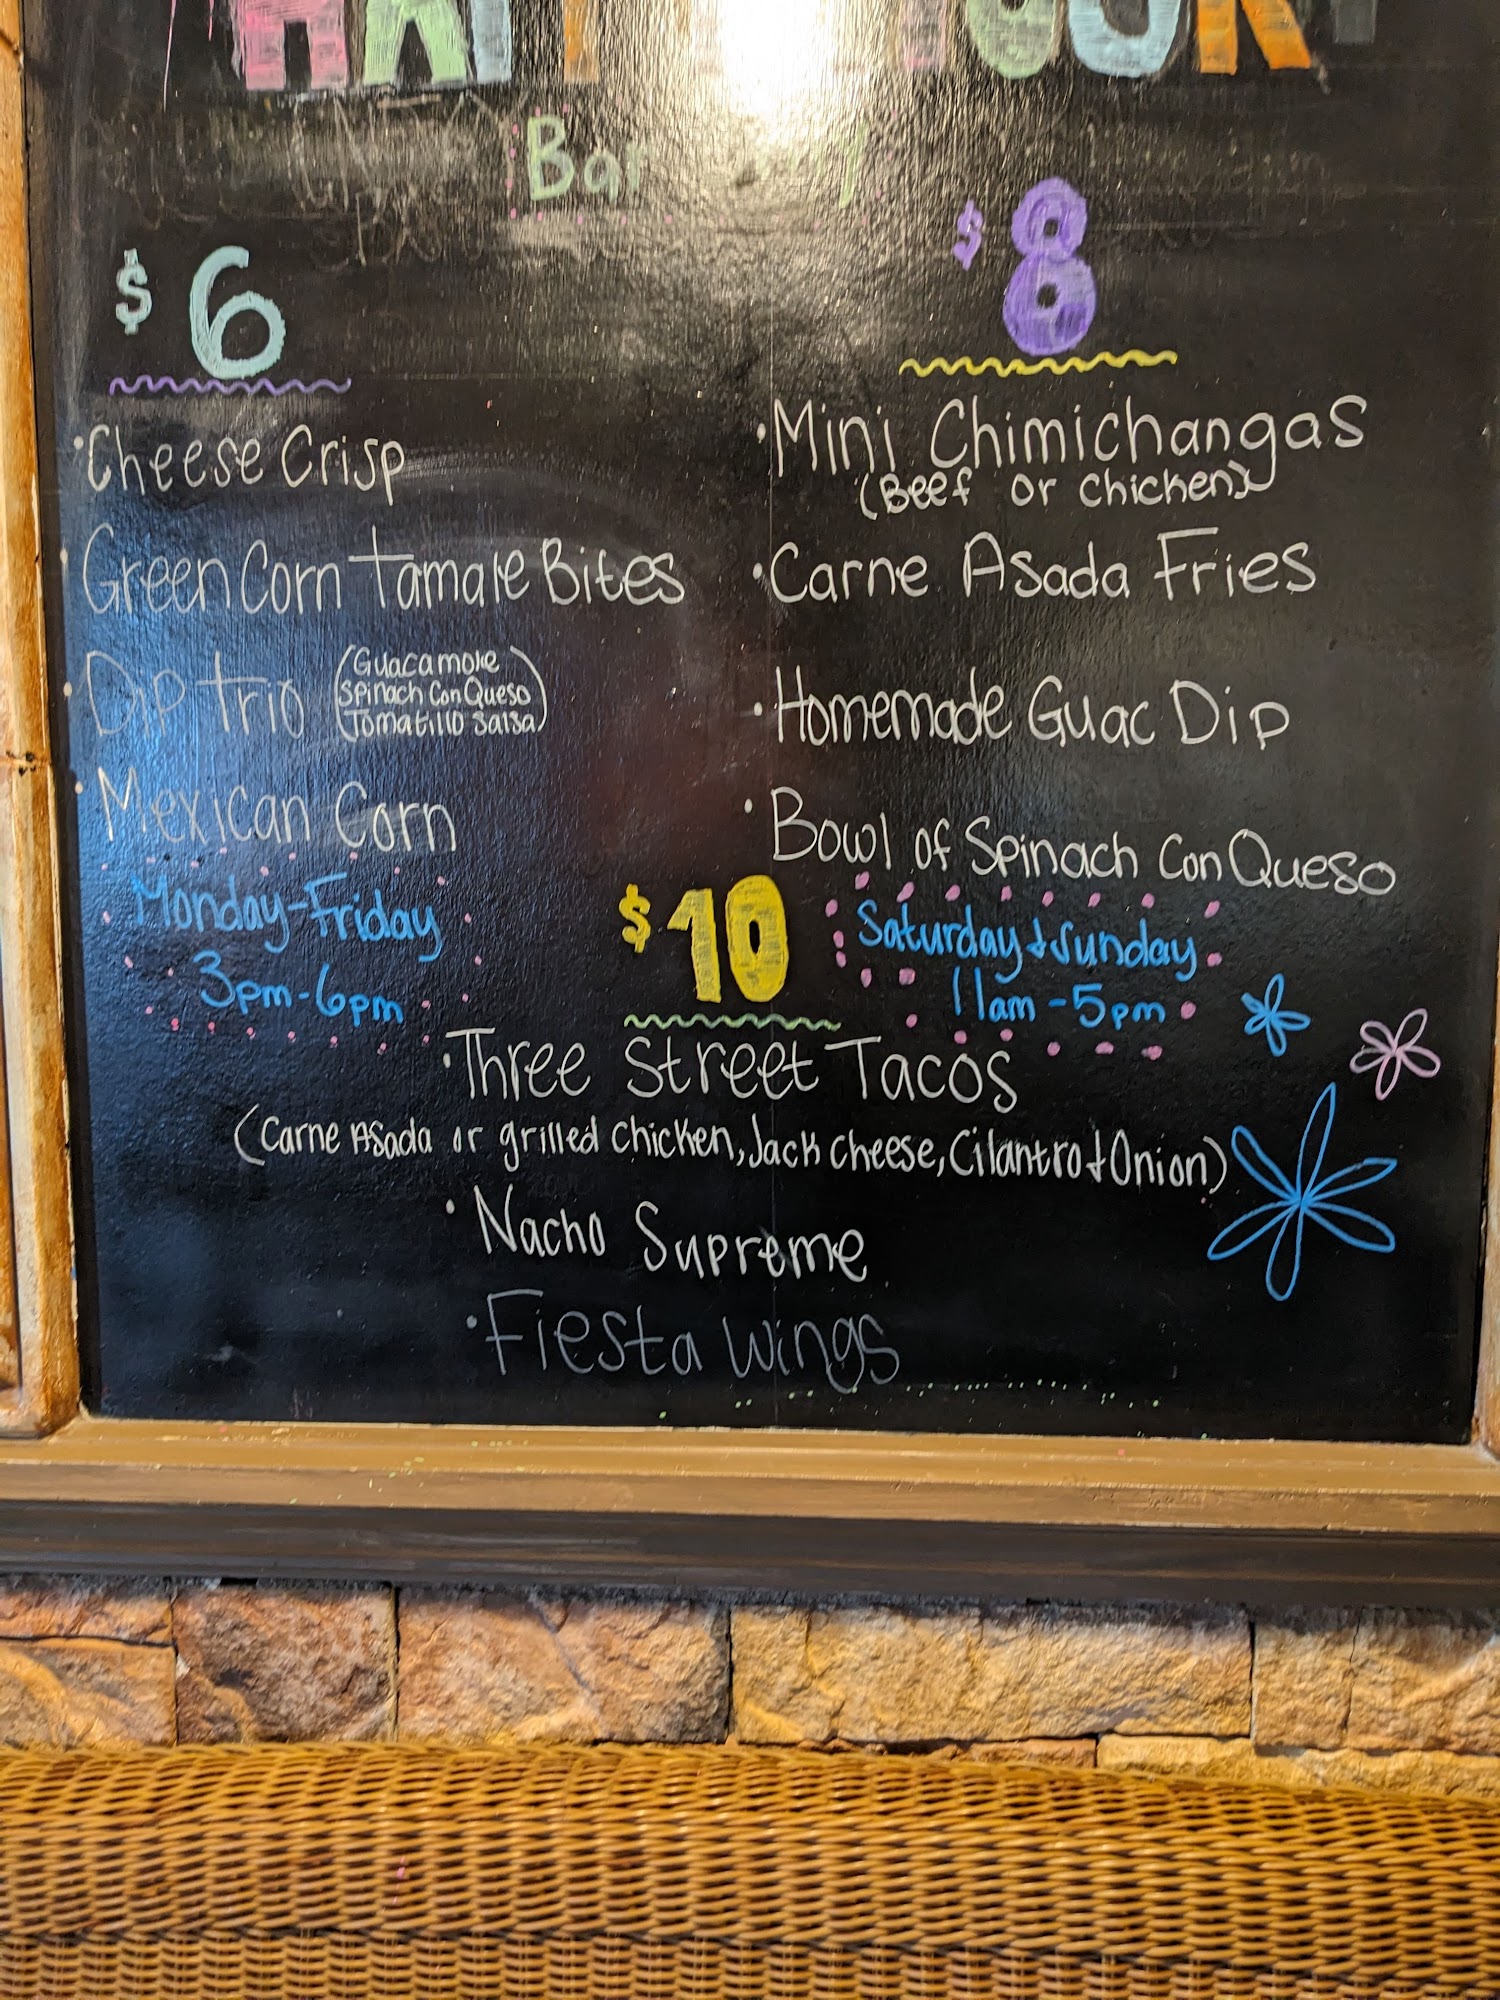 HAPPY HOUR
$6
• Cheese Crisp
• Green Corn Tamale Bites
• Dip Trio (Guacamole
Spinach Con Queso
Tomatillo Salsa)
• Mexican Corn
Monday-Friday
3pm-6pm
$8
• Mini Chimichangas
(Beef or Chicken)
• Carne Asada Fries
• Homemade Guac Dip
• Bowl of Spinach Con Queso
Saturday + Sunday
11am-5pm
$10
• Three Street Tacos
(Carne Asada or grilled chicken, Jack cheese, Cilantro + Onion)
• Nacho Supreme
• Fiesta Wings